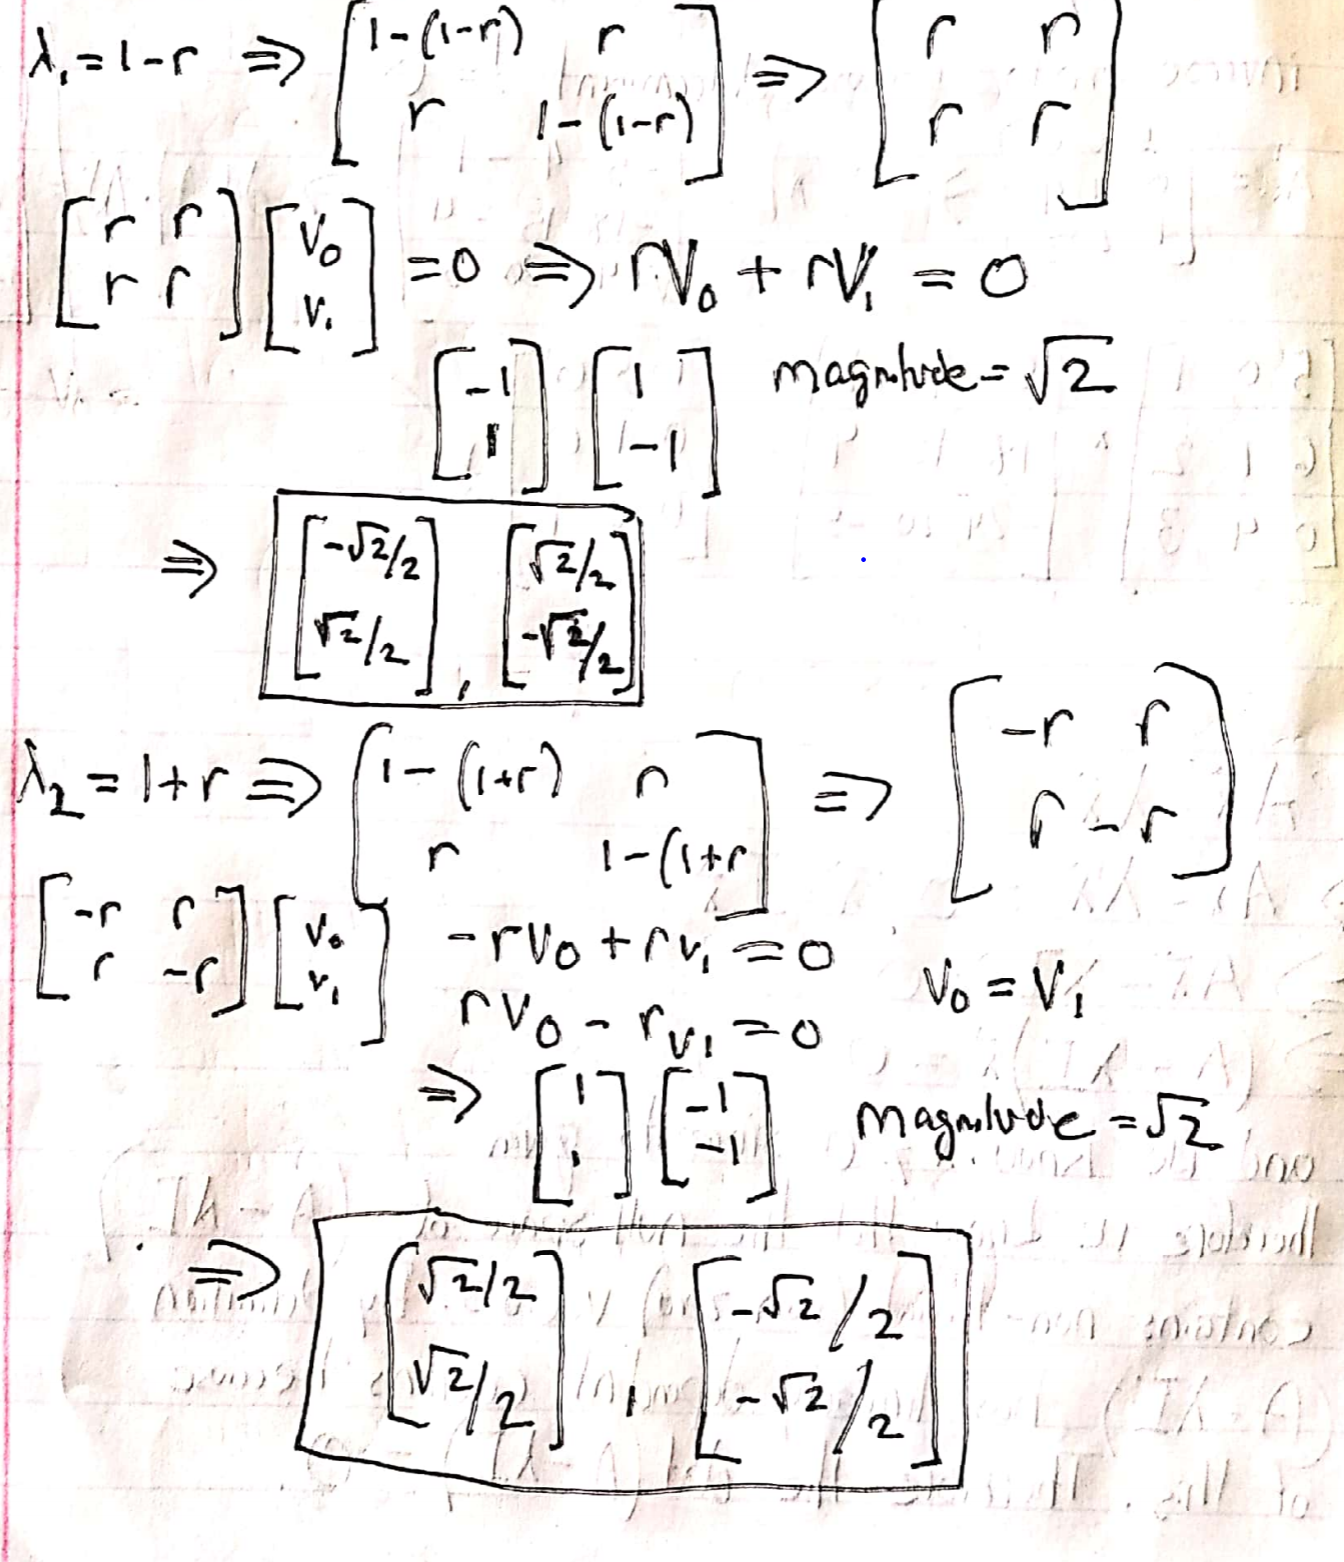 λ₁ = 1-r ⇒ [1-(1-r) r; r 1-(1-r)] ⇒ [r r; r r]
[r r; r r] [V₀; V₁] = 0 ⇒ rV₀ + rV₁ = 0
[-1; 1] [1; -1] magnitude = √2
⇒ [-√2/2; √2/2], [√2/2; -√2/2]
λ₂ = 1+r ⇒ [1-(1+r) r; r 1-(1+r] ⇒ [-r r; r -r]
[-r r; r -r] [V₀; V₁] -rV₀ + rV₁ = 0
rV₀ - rV₁ = 0 V₀ = V₁
⇒ [1; 1] [-1; -1] magnitude = √2
⇒ [√2/2; √2/2], [-√2/2; -√2/2]